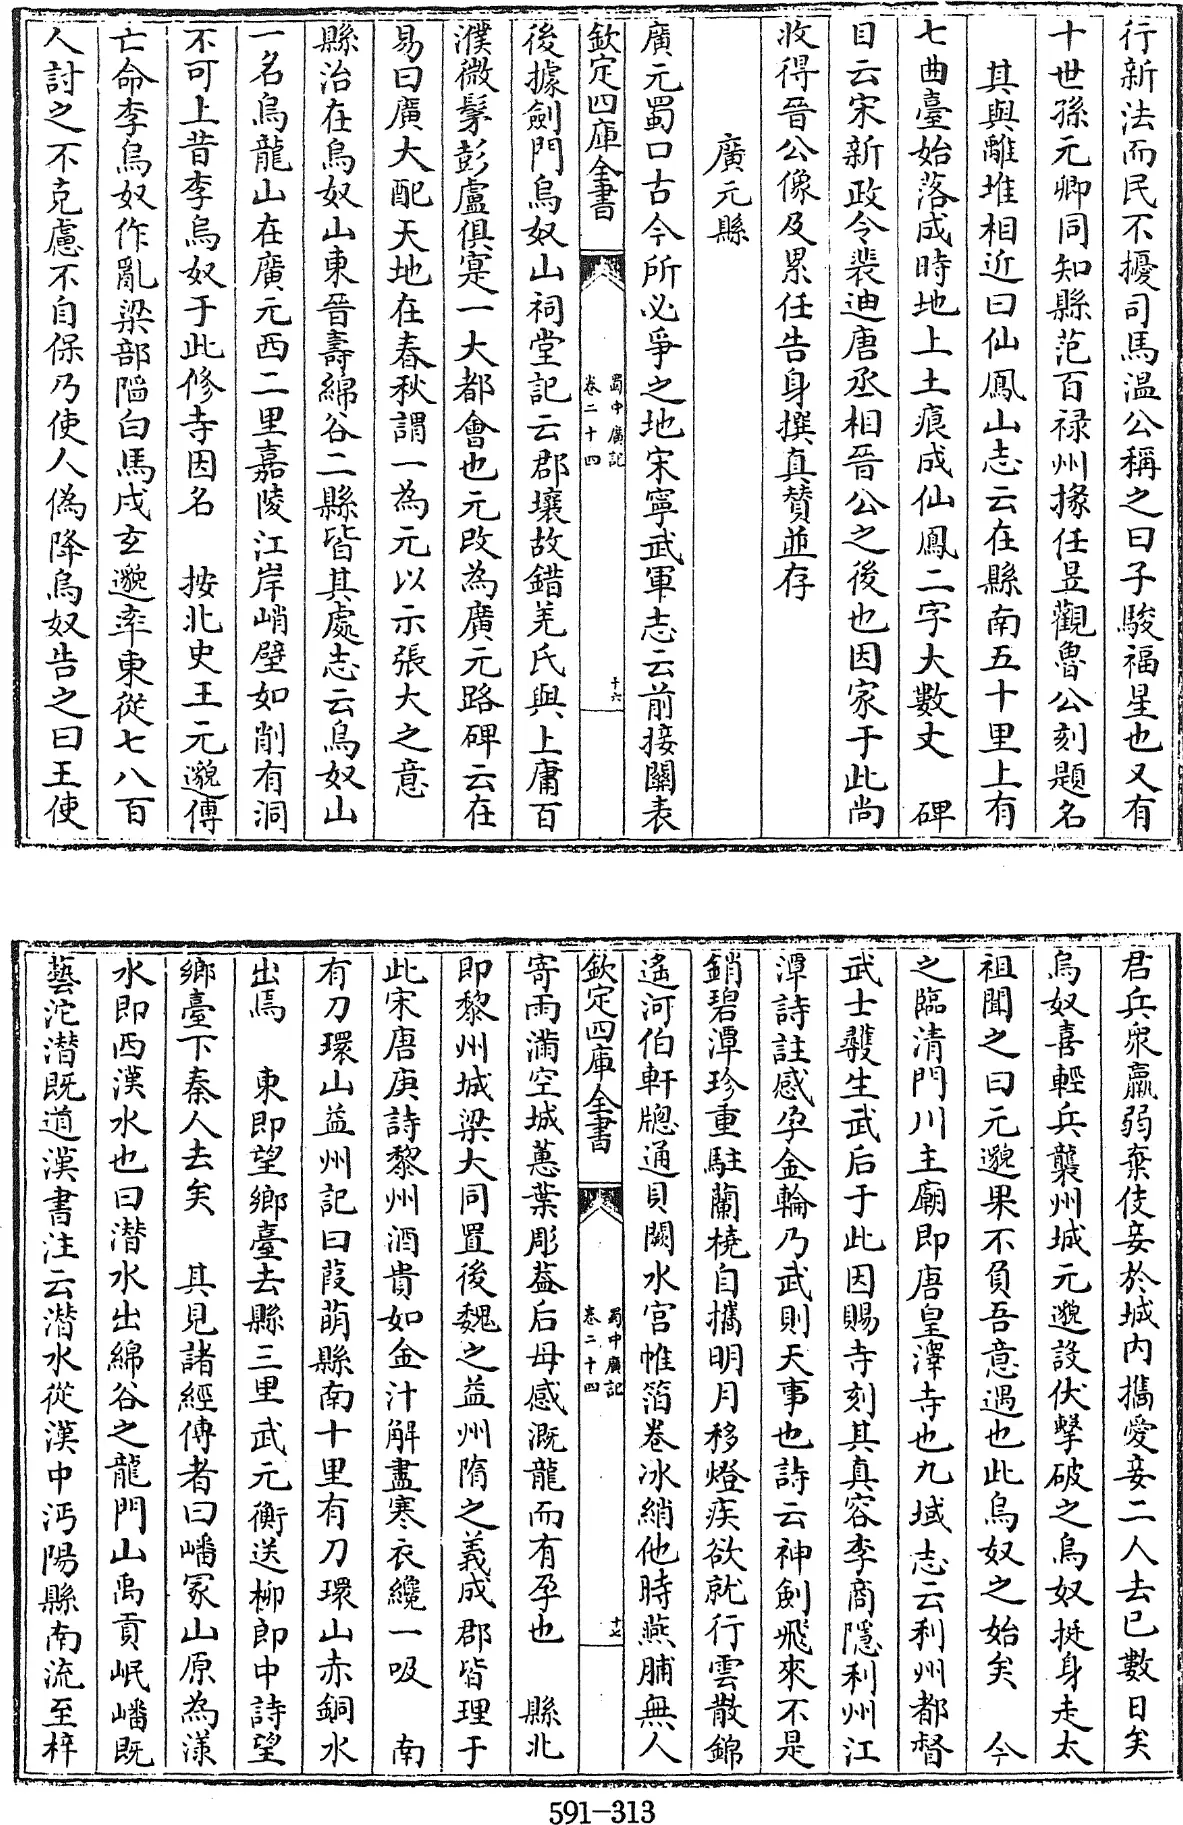 行新法而民不擾司馬溫公稱之曰子駿福星也又有
十世孫元卿同知縣范百祿州掾任昱觀魯公刻題名
其與離堆相近曰仙鳳山志云在縣南五十里上有
七曲臺始落成時地上土痕成仙鳳二字大數丈　碑
目云宋新政令裴迪唐丞相晉公之後也因家于此尚
收得晉公像及累任告身撰真贊並存
廣元縣
廣元蜀口古今所必爭之地宋寧武軍志云前接關表
欽定四庫全書
蜀中廣記
卷二十四
十六
後據劍門烏奴山祠堂記云郡壤故錯羌氐與上庸百
濮微髳彭盧俱寔一大都會也元改為廣元路碑云在
易曰廣大配天地在春秋謂一為元以示張大之意
縣治在烏奴山東晉壽綿谷二縣皆其處志云烏奴山
一名烏龍山在廣元西二里嘉陵江岸峭壁如削有洞
不可上昔李烏奴于此修寺因名　按北史王元邈傳
亡命李烏奴作亂梁部陷白馬戍玄邈率東從七八百
人討之不克慮不自保乃使人偽降烏奴告之曰王使
君兵衆羸弱棄伎妾於城内攜愛妾二人去已數日矣
烏奴喜輕兵襲州城元邈設伏擊破之烏奴挺身走太
祖聞之曰元邈果不負吾意遇也此烏奴之始矣　今
之臨清門川主廟即唐皇澤寺也九域志云利州都督
武士彠生武后于此因賜寺刻其真容李商隱利州江
潭詩註感孕金輪乃武則天事也詩云神劍飛來不是
銷碧潭珍重駐蘭橈自攜明月移燈疾欲就行雲散錦
遙河伯軒牕通貝闕水宫帷箔卷冰綃他時燕脯無人
欽定四庫全書
蜀中廣記
卷二十四
十七
寄雨滿空城蕙葉彫葢后母感溉龍而有孕也　縣北
即黎州城梁大同置後魏之益州隋之義成郡皆理于
此宋唐庚詩黎州酒貴如金汁解盡寒衣纔一吸　南
有刀環山益州記曰葭萌縣南十里有刀環山赤銅水
出焉　東即望鄉臺去縣三里武元衡送柳郎中詩望
鄉臺下秦人去矣　其見諸經傳者曰嶓冢山原為漾
水即西漢水也曰潛水出綿谷之龍門山禹貢岷嶓既
藝沱潛既道漢書注云潛水從漢中沔陽縣南流至梓
591-313